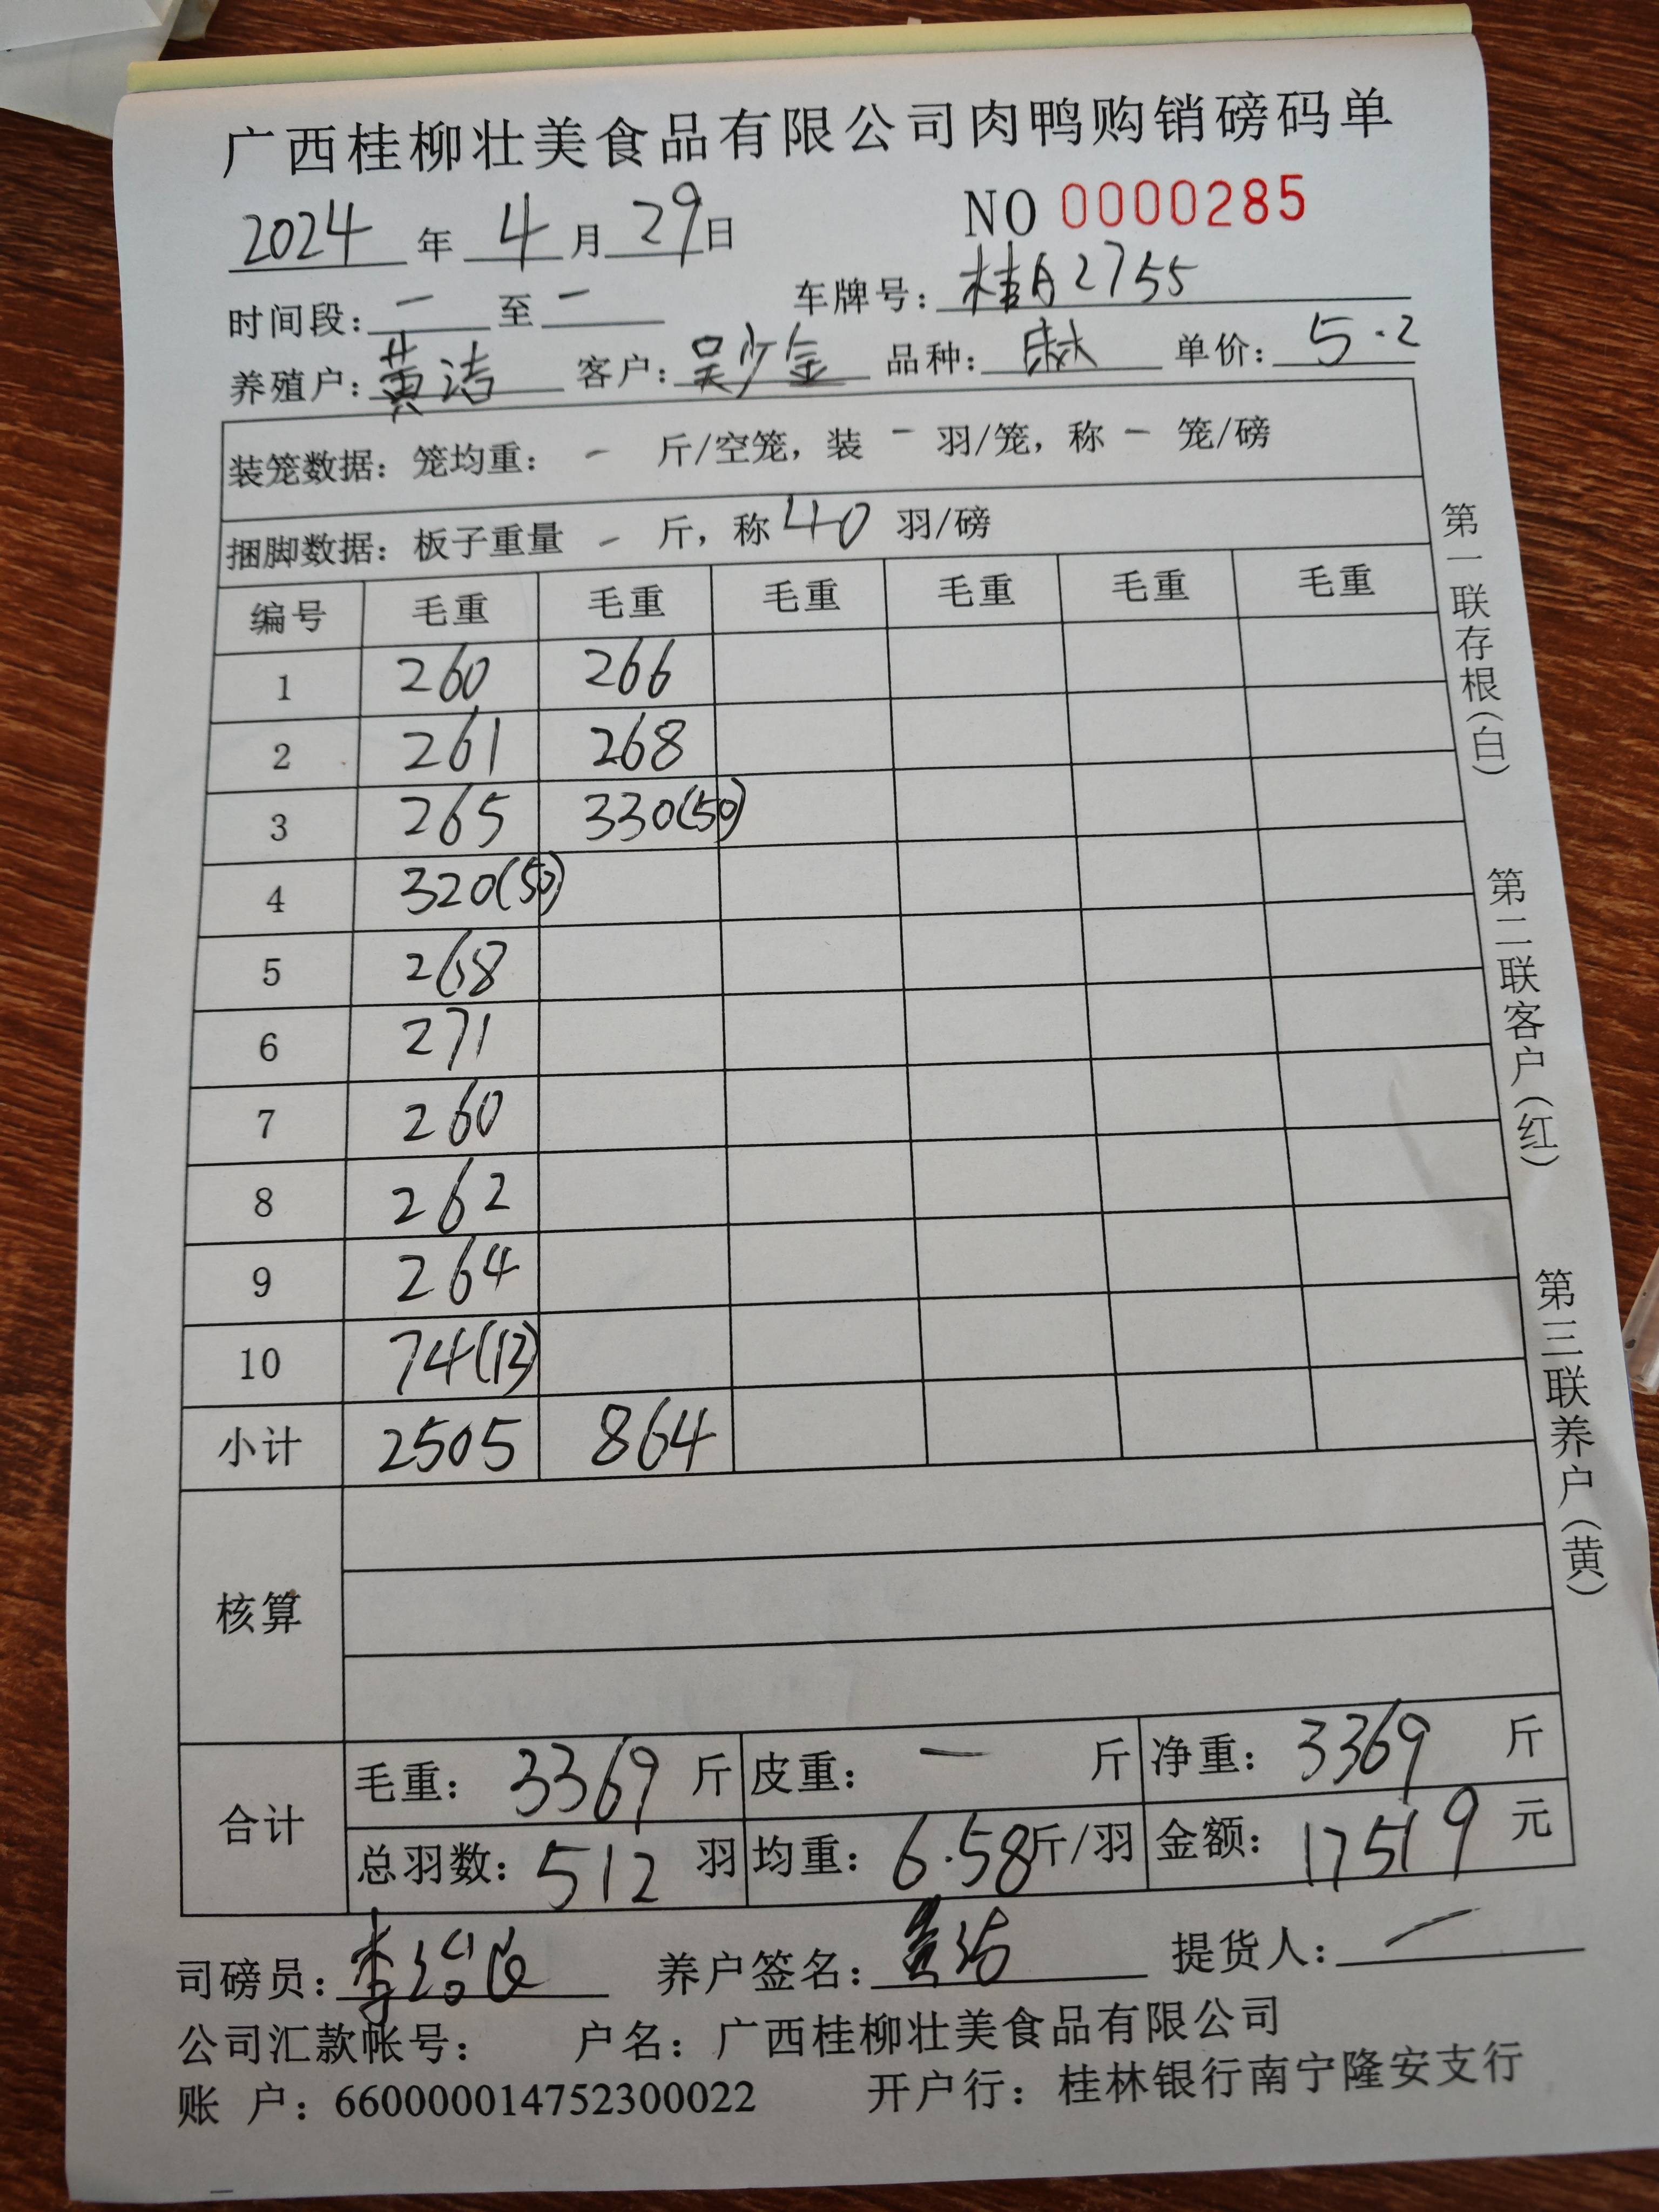 广西桂柳壮美食品有限公司肉鸭购销磅码单
2024 年 4 月 29 日 NO 0000285
时间段: 一 至 一 车牌号: 桂A2755
养殖户: 黄洁 客户: 吴少金 品种: 单价: 5.2
装笼数据: 笼均重: - 斤/空笼, 装 - 羽/笼, 称 - 笼/磅
捆脚数据: 板子重量 - 斤, 称 40 羽/磅
编号 毛重 毛重 毛重 毛重 毛重 毛重
1 260 266
2 261 268
3 265 330(50)
4 320(50)
5 268
6 271
7 260
8 262
9 264
10 74(12)
小计 2505 864
核算
合计
毛重: 3369 斤 皮重: 一 斤 净重: 3369 斤
总羽数: 512 羽 均重: 6.58 斤/羽 金额: 17519 元
司磅员: 养户签名: 黄洁 提货人: 一
公司汇款帐号: 户名: 广西桂柳壮美食品有限公司
账 户: 660000014752300022 开户行: 桂林银行南宁隆安支行
第一联存根(白)
第二联客户(红)
第三联养户(黄)